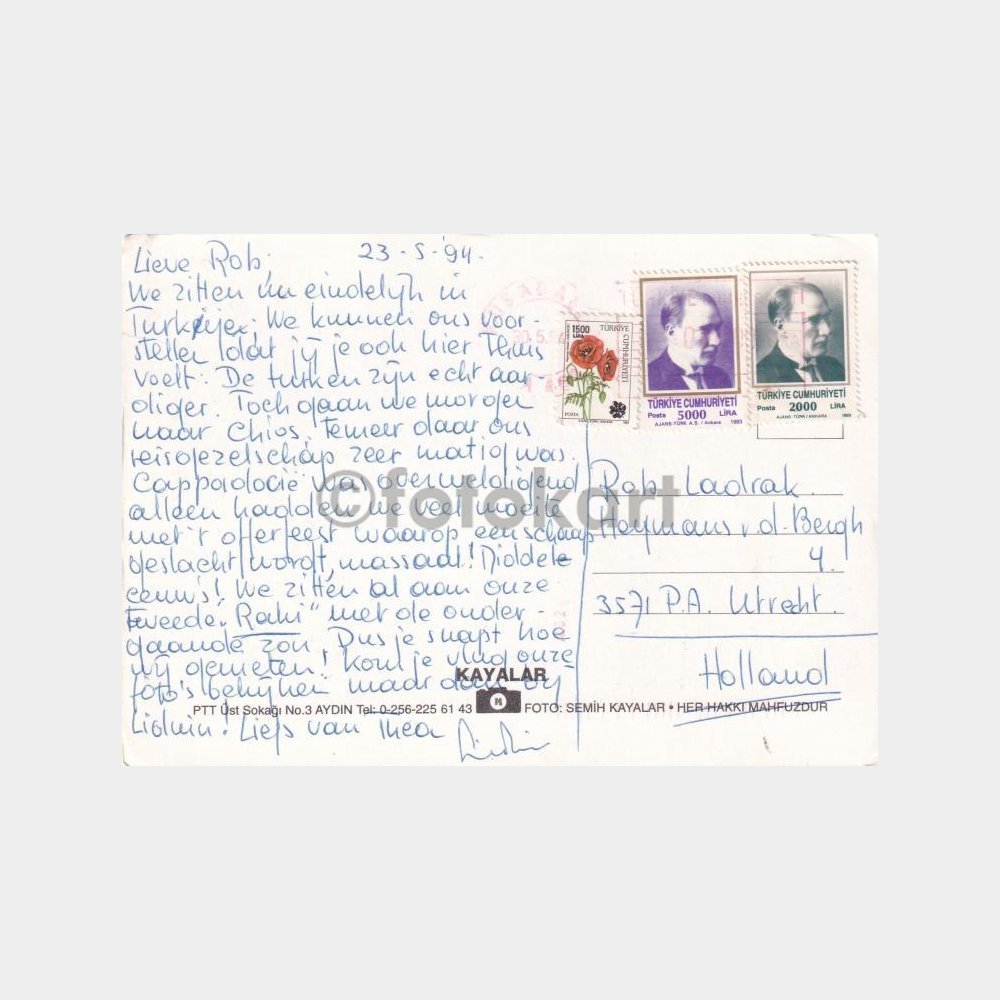 Lieve Rob, 23-5-'94.
We zitten nu eindelijk in
Turkije. We kunnen ons voor-
stellen dat jij je ook hier thuis
voelt. De turken zijn echt aar-
diger. Toch gaan we morgen
naar Chios, temeer daar ons
reisgezelschap zeer matig was.
Cappadocië was overweldigend
alleen hadden we veel moeite
met 't offerfeest waarop een schaap
geslacht wordt, massaal! Middele
eeuws! We zitten al aan onze
tweede "Raki" met de onder-
gaande zon. Dus je snapt hoe
wij genieten! Kom je vlug onze
foto's bekijken maar dan bij
Lidwin! Liefs van Thea
Lidwin
1500
LİRA
TÜRKİYE CUMHURİYETİ
POSTA
TÜRKİYE CUMHURİYETİ
Posta 5000 LİRA
AJANS-TÜRK A.Ş. / Ankara 1993
TÜRKİYE CUMHURİYETİ
Posta 2000 LİRA
AJANS-TÜRK / ANKARA 1993
©fotokart
Rob Ladrak.
Heymans v.d. Bergh
4.
3571 P.A. Utrecht.
Holland
KAYALAR
PTT Üst Sokağı No.3 AYDIN Tel: 0-256-225 61 43 FOTO: SEMİH KAYALAR • HER HAKKI MAHFUZDUR